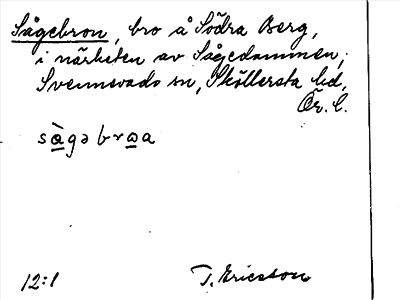 Sågebron, bro å Södra Berg,
i närheten av Sågedammen,
Svennevads sn, Sköllersta hd,
Ör. l.
sågəbrωa
12:1
T. Ericsson